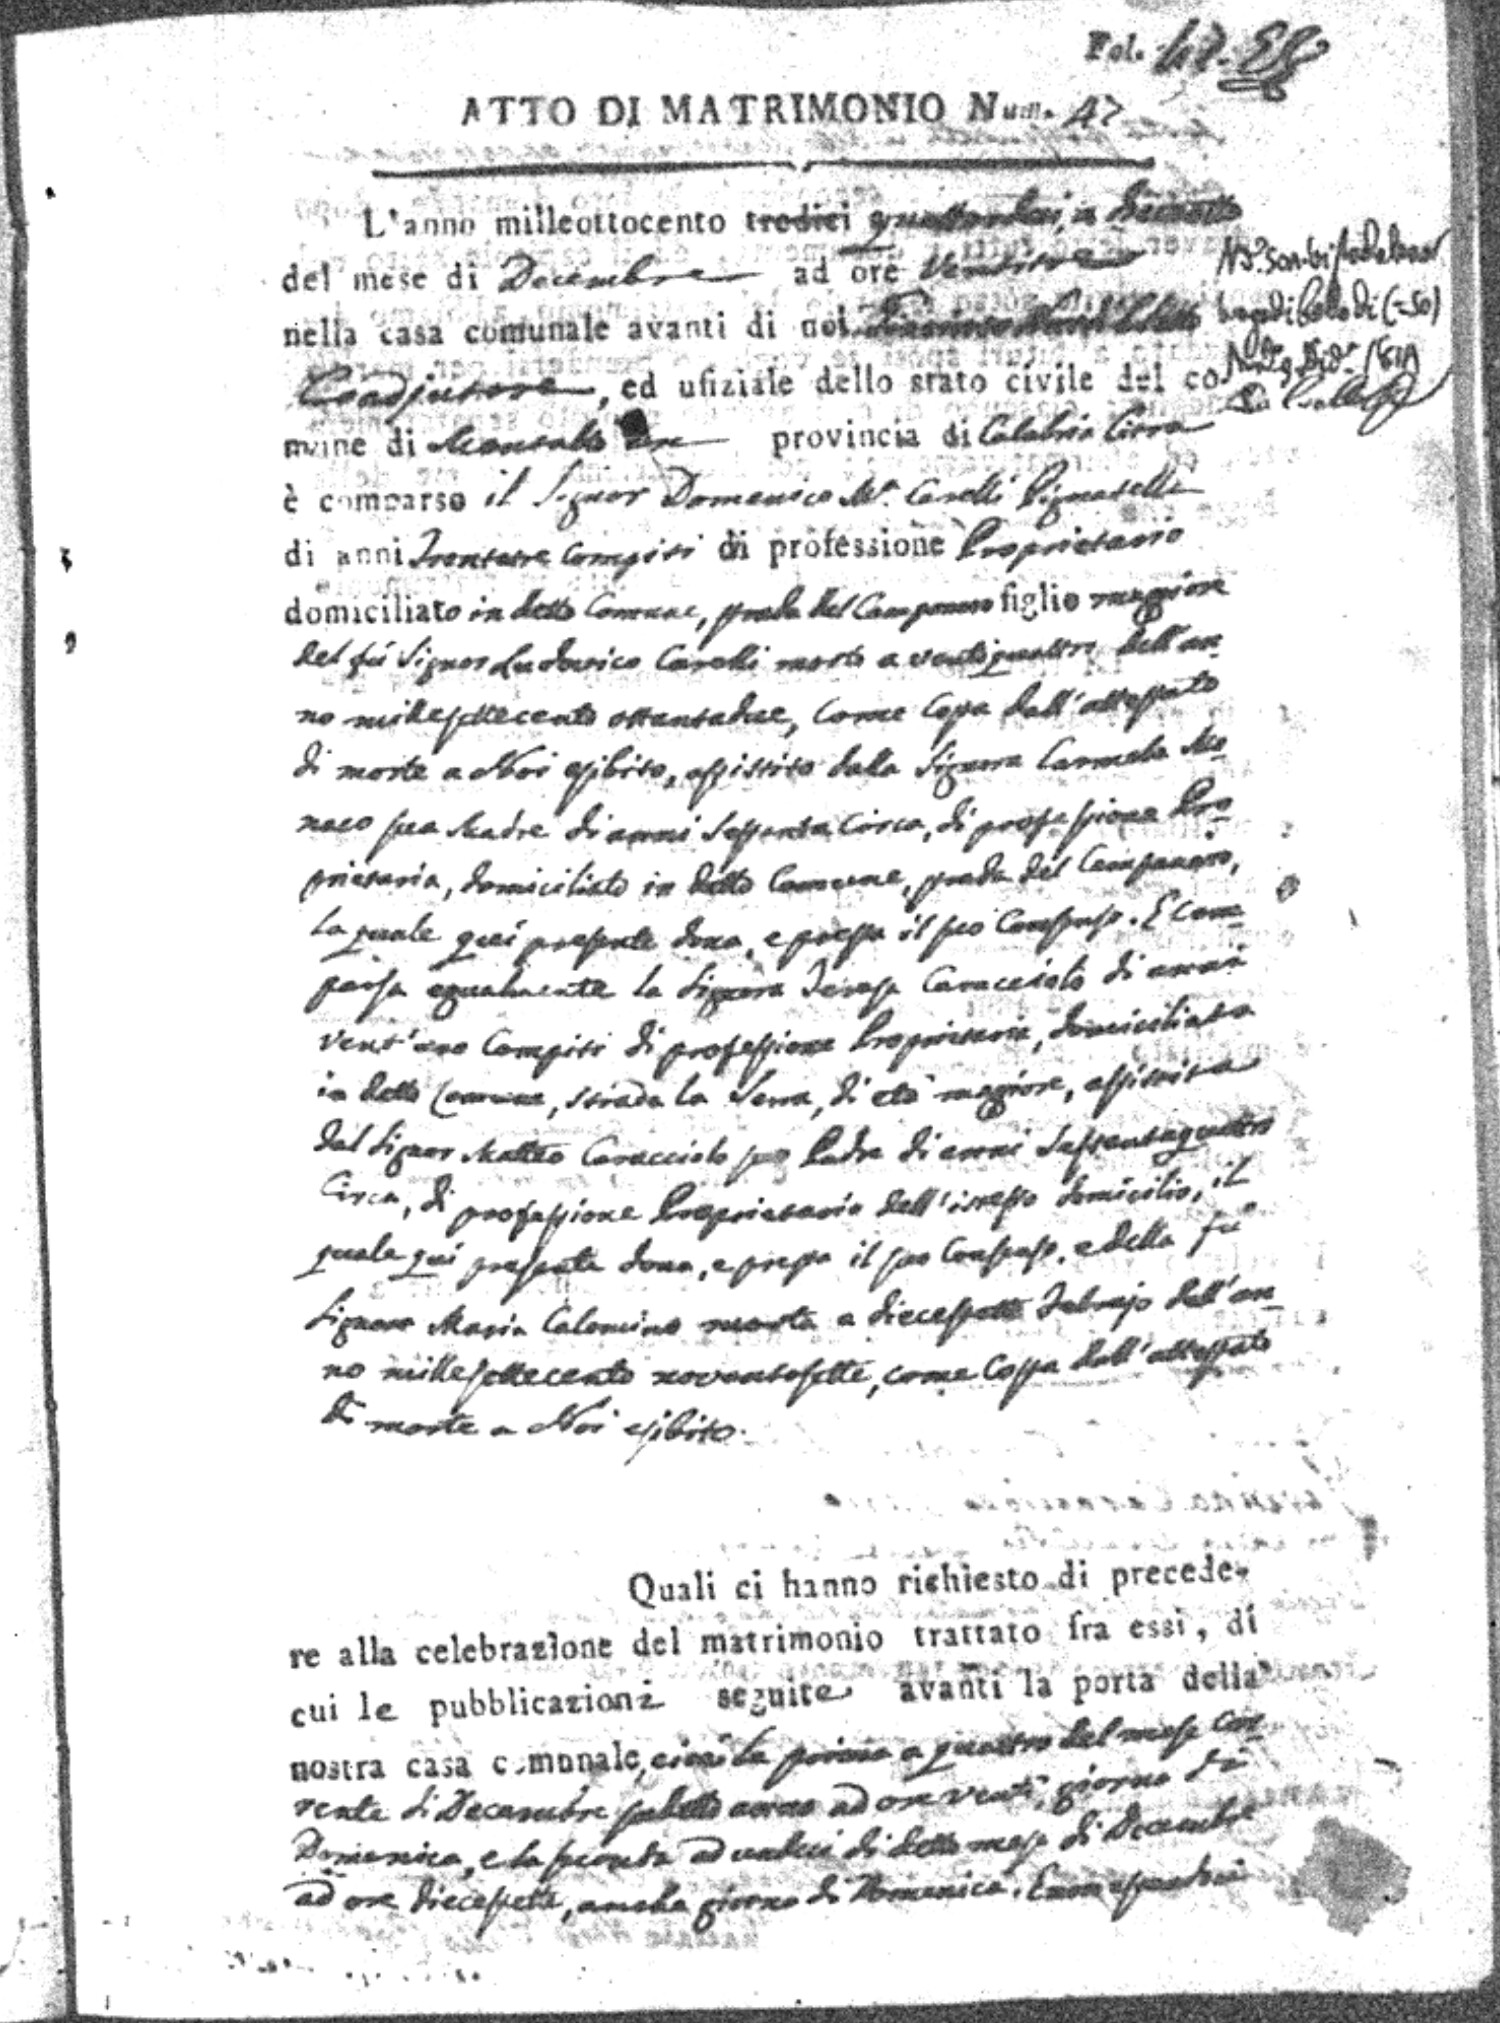 Fol. 47.
ATTO DI MATRIMONIO Num. 47
L'anno milleottocento tredici quattordici, a dieciotto
del mese di Decembre ad ore Ventitre
nella casa comunale avanti di noi
Coadjutore, ed ufiziale dello stato civile del co-
mune di Montalto provincia di Calabria Citra
è comparso il Signor Domenico M.ª Carelli Pignatelli
di anni Trentatre compiti di professione Proprietario
domiciliato in detto Comune, strada del Campanaro figlio maggiore
del fù Signor Ludovico Carelli morto a ventiquattro dell'an-
no millesettecento ottantadue, come costa dall'attestato
di morte a Noi esibito, assistito dalla Signora Carmela Mo-
naco sua Madre di anni sessanta circa, di professione Pro-
prietaria, domiciliata in detto Comune, strada del Campanaro,
la quale quì presente dona, e presta il suo Consenso. E com-
parsa egualmente la Signora Teresa Caracciolo di anni
vent'uno compiti di professione Proprietaria, domiciliata
in detto Comune, strada la Serra, di età maggiore, assistita
dal Signor Matteo Caracciolo suo Padre di anni sessantaquattro
circa, di professione Proprietario dell'istesso domicilio, il
quale quì presente dona, e presta il suo Consenso, e della fù
Signora Maria Calomino morta a diecessette Febrajo dell'an-
no millesettecento novantasette, come costa dall'attestato
di morte a Noi esibito.
Quali ci hanno richiesto di precede-
re alla celebrazione del matrimonio trattato fra essi, di
cui le pubblicazioni seguite avanti la porta della
nostra casa comunale, cioè la prima a quattro del mese cor-
rente di Decembre sudetto anno ad ore venti, giorno di
Domenica, e la seconda ad undeci di detto mese di Decembre
ad ore diecessette, anche giorno di Domenica. E non essendoci